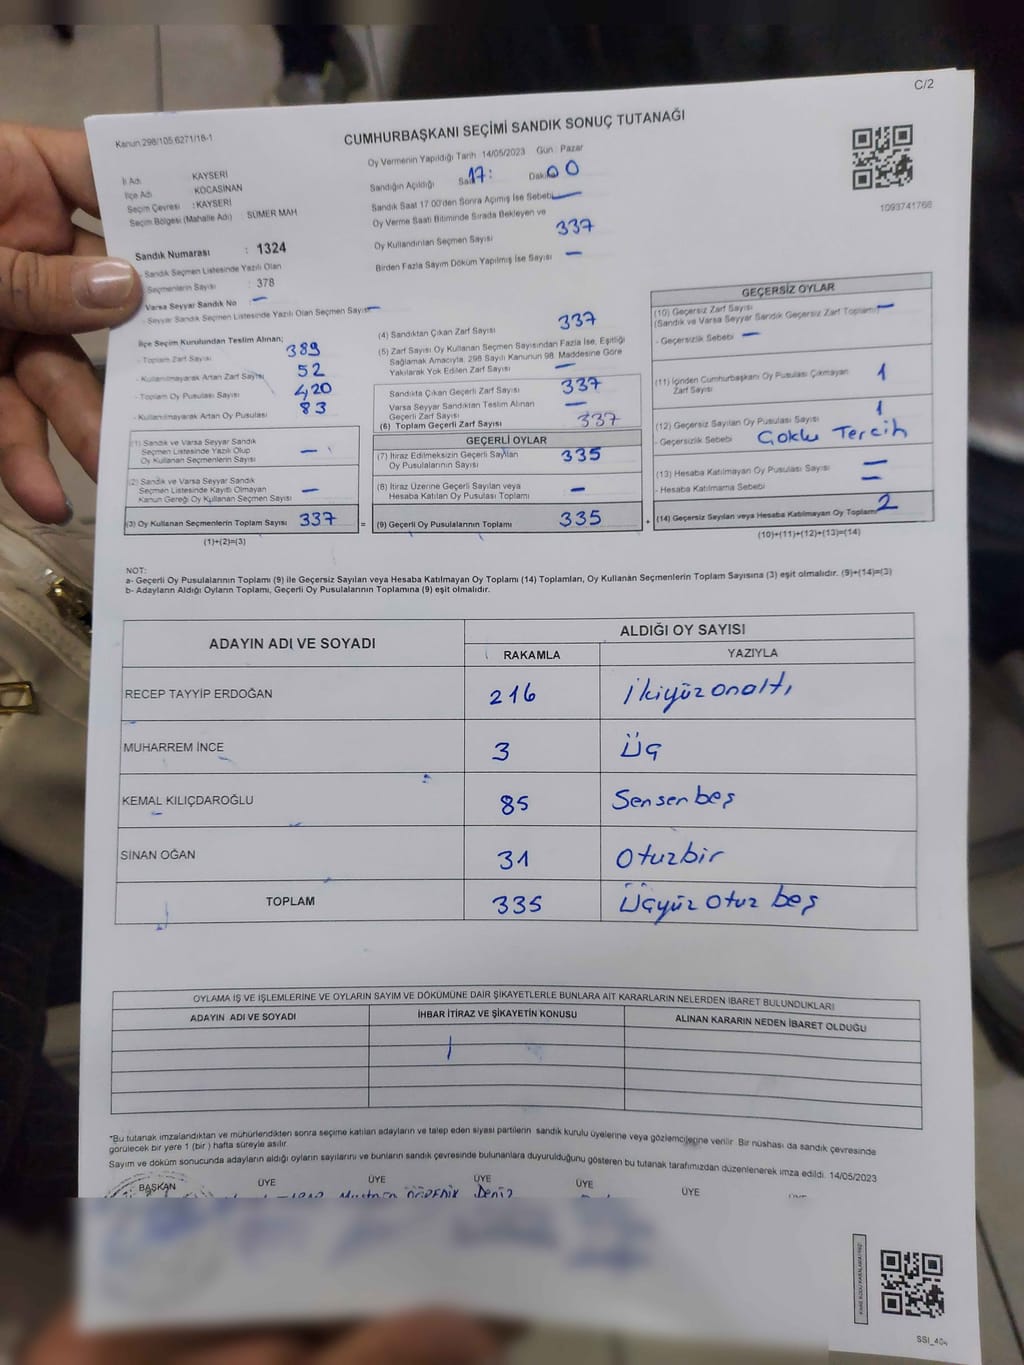 C/2
Kanun:298/105.6271/16-1
CUMHURBAŞKANI SEÇİMİ SANDIK SONUÇ TUTANAĞI
İl Adı : KAYSERİ
İlçe Adı : KOCASİNAN
Seçim Çevresi : KAYSERİ
Seçim Bölgesi (Mahalle Adı) SÜMER MAH
Sandık Numarası : 1324
- Sandık Seçmen Listesinde Yazılı Olan
Seçmenlerin Sayısı : 378
Varsa Seyyar Sandık No : —
- Seyyar Sandık Seçmen Listesinde Yazılı Olan Seçmen Sayısı —
İlçe Seçim Kurulundan Teslim Alınan;
- Toplam Zarf Sayısı 389
- Kullanılmayarak Artan Zarf Sayısı 52
- Toplam Oy Pusulası Sayısı 420
- Kullanılmayarak Artan Oy Pusulası 83
(1) Sandık ve Varsa Seyyar Sandık
Seçmen Listesinde Yazılı Olup
Oy Kullanan Seçmenlerin Sayısı —
(2) Sandık ve Varsa Seyyar Sandık
Seçmen Listesinde Kayıtlı Olmayan
Kanun Gereği Oy Kullanan Seçmen Sayısı —
(3) Oy Kullanan Seçmenlerin Toplam Sayısı 337
(1)+(2)=(3)
Oy Vermenin Yapıldığı Tarih : 14/05/2023 Gün : Pazar
Sandığın Açıldığı Saat 17: Dakika 00
Sandık Saat 17:00'den Sonra Açımış İse Sebebi —
Oy Verme Saati Bitiminde Sırada Bekleyen ve
Oy Kullandırılan Seçmen Sayısı 337
Birden Fazla Sayım Döküm Yapılmış İse Sayısı —
(4) Sandıktan Çıkan Zarf Sayısı 337
(5) Zarf Sayısı Oy Kullanan Seçmen Sayısından Fazla İse, Eşitliği
Sağlamak Amacıyla, 298 Sayılı Kanunun 98. Maddesine Göre
Yakılarak Yok Edilen Zarf Sayısı —
Sandıkta Çıkan Geçerli Zarf Sayısı 337
Varsa Seyyar Sandıktan Teslim Alınan
Geçerli Zarf Sayısı —
(6) Toplam Geçerli Zarf Sayısı 337
GEÇERLİ OYLAR
(7) İtiraz Edilmeksizin Geçerli Sayılan
Oy Pusulalarının Sayısı 335
(8) İtiraz Üzerine Geçerli Sayılan veya
Hesaba Katılan Oy Pusulası Toplamı —
= (9) Geçerli Oy Pusulalarının Toplamı 335 +
1093741768
GEÇERSİZ OYLAR
(10) Geçersiz Zarf Sayısı
(Sandık ve Varsa Seyyar Sandık Geçersiz Zarf Toplamı) —
- Geçersizlik Sebebi —
(11) İçinden Cumhurbaşkanı Oy Pusulası Çıkmayan
Zarf Sayısı 1
(12) Geçersiz Sayılan Oy Pusulası Sayısı 1
- Geçersizlik Sebebi Çoklu Tercih
(13) Hesaba Katılmayan Oy Pusulası Sayısı —
- Hesaba Katılmama Sebebi —
(14) Geçersiz Sayılan veya Hesaba Katılmayan Oy Toplamı 2
(10)+(11)+(12)+(13)=(14)
NOT:
a- Geçerli Oy Pusulalarının Toplamı (9) ile Geçersiz Sayılan veya Hesaba Katılmayan Oy Toplamı (14) Toplamları, Oy Kullanan Seçmenlerin Toplam Sayısına (3) eşit olmalıdır. (9)+(14)=(3)
b- Adayların Aldığı Oyların Toplamı, Geçerli Oy Pusulalarının Toplamına (9) eşit olmalıdır.
ADAYIN ADI VE SOYADI
ALDIĞI OY SAYISI
RAKAMLA YAZIYLA
RECEP TAYYİP ERDOĞAN 216 İkiyüzonaltı
MUHARREM İNCE 3 Üç
KEMAL KILIÇDAROĞLU 85 Sensenbeş
SİNAN OĞAN 31 Otuzbir
TOPLAM 335 Üçyüz otuz beş
OYLAMA İŞ VE İŞLEMLERİNE VE OYLARIN SAYIM VE DÖKÜMÜNE DAİR ŞİKAYETLERLE BUNLARA AİT KARARLARIN NELERDEN İBARET BULUNDUKLARI
ADAYIN ADI VE SOYADI İHBAR İTİRAZ VE ŞİKAYETİN KONUSU ALINAN KARARIN NEDEN İBARET OLDUĞU
*Bu tutanak imzalandıktan ve mühürlendikten sonra seçime katılan adayların ve talep eden siyasi partilerin sandık kurulu üyelerine veya gözlemcilerine verilir. Bir nüshası da sandık çevresinde
görülecek bir yere 1 (bir) hafta süreyle asılır.
Sayım ve döküm sonucunda adayların aldığı oyların sayılarını ve bunların sandık çevresinde bulunanlara duyurulduğunu gösteren bu tutanak tarafımızdan düzenlenerek imza edildi. 14/05/2023
BAŞKAN ÜYE ÜYE ÜYE ÜYE ÜYE
Mustafa Deniz